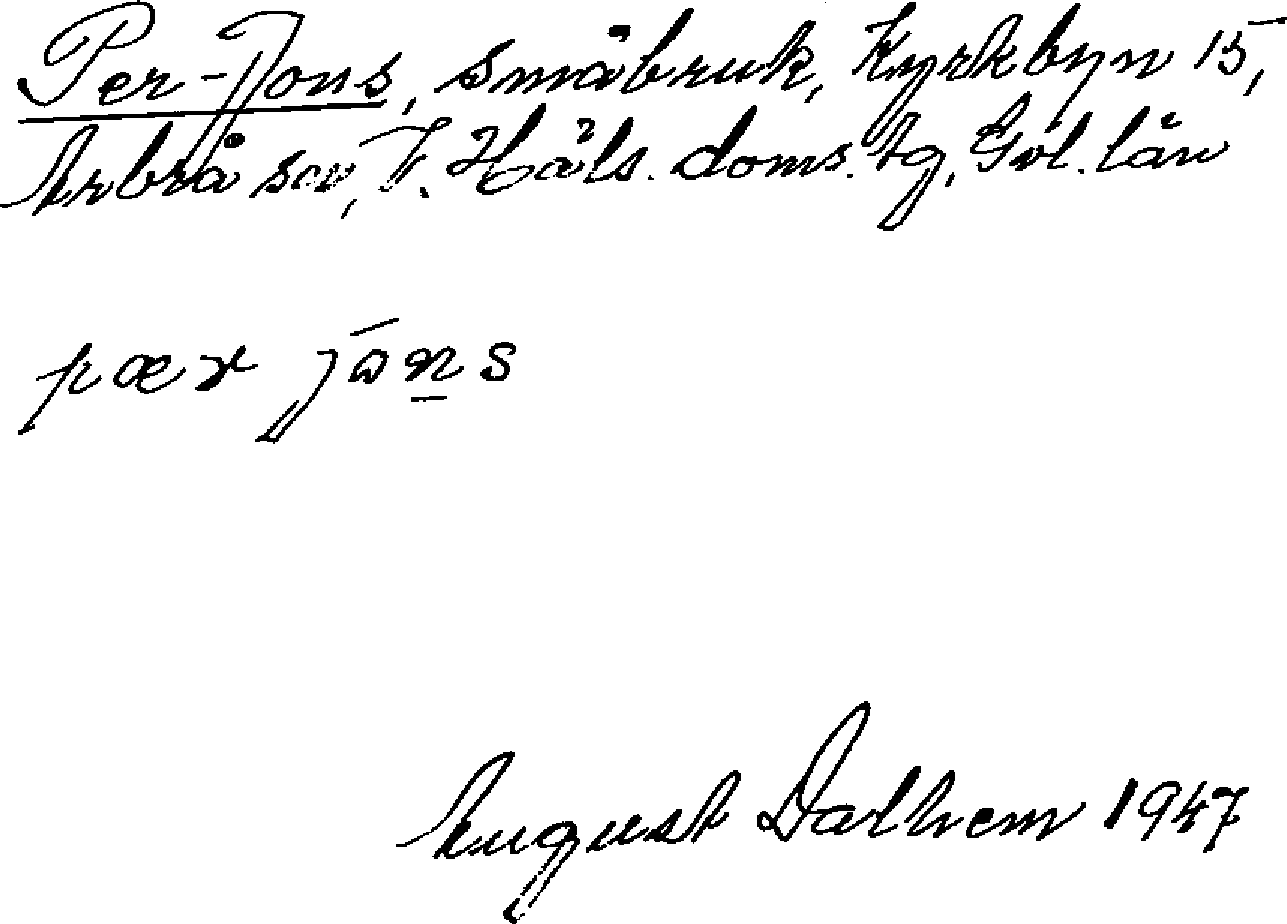 Per-Jons, småbruk, Kyrkbyn 15,
Arbrå sn, V. Häls. doms. tg, Gvl. län
pær jōn̲s
August Dalhem 1947